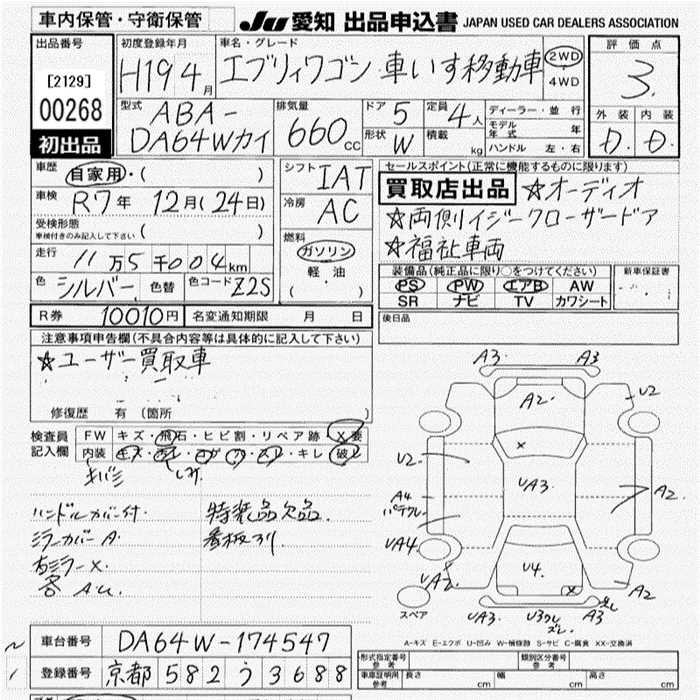 車内保管・守衛保管 JU 愛知 出品申込書 JAPAN USED CAR DEALERS ASSOCIATION
出品番号 初度登録年月 車名・グレード 評価点
[2129] H19 4月 エブリィワゴン 車いす移動車 2WD 4WD 3.
00268 型式 排気量 ドア 5 定員 4人 ディーラー・並行 外装 内装
初出品 ABA- モデル年式 年
DA64Wカイ 660cc 形状 W 積載 kg ハンドル 左・右 D. D.
車歴 自家用・( ) シフト IAT セールスポイント(正常に機能するものに限ります)
車検 R7年 12月(24日) 冷房 AC 買取店出品 ☆オーディオ
受検形態 ☆両側イージークローザードア
車検付きのみ記入して下さい ( ) 燃料 ☆福祉車両
走行 11万5千004km ガソリン 装備品(純正品に限り○をつけてください) 新車保証書
色 シルバー 色替 色コード Z2S 軽油 PS PW エアB AW
( ) SR ナビ TV カワシート
R券 10010円 名変通知期限 月 日 後日品
注意事項申告欄(不具合内容等は具体的に記入して下さい)
☆ユーザー買取車
修復歴 有(箇所 )
検査員 FW キズ・飛石・ヒビ割・リペア跡 X要
記入欄 内装 キズ・ ・キレ・破レ
ハンドルカバー付 特装品欠品.
ミラーカバーA 看板
A3. A3
A2. U2
U2. UA3. A2.
A4
UA4.
U4. A2
スペア UA3 UA3
A-キズ E-エクボ U-凹み W-補修跡 S-サビ C-腐食 XX-交換済
車台番号 DA64W-174547
登録番号 京都 582 う 3688
形式指定番号 参考 類別区分番号 参考
車庫証明用 参考 長さ cm 幅 cm 高さ cm